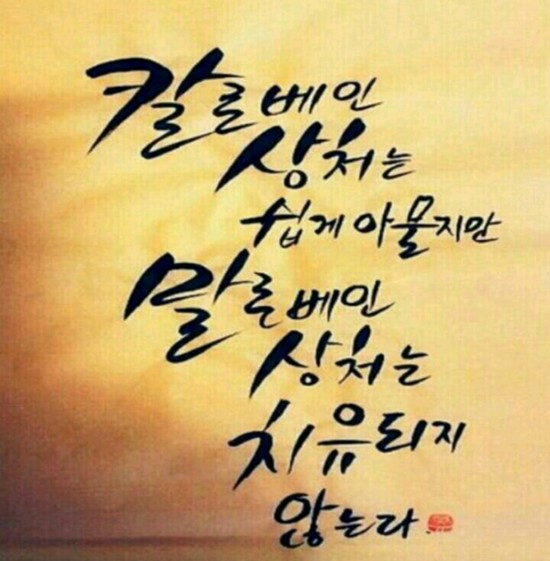 칼로 베인
상처는
쉽게 아물지만
말로 베인
상처는
치유되지
않는다